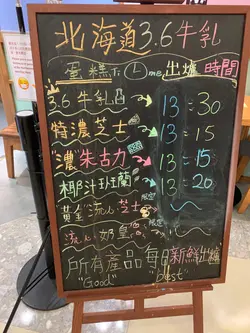 北海道3.6牛乳
蛋糕Time出爐時間
3.6牛乳 13:30
特濃芝士 13:15
"濃"朱古力 13:15
椰汁班蘭 13:20
黃金流心芝士 限定
流心奶皇 限定
所有產品每日新鮮出爐
"Good" "best"